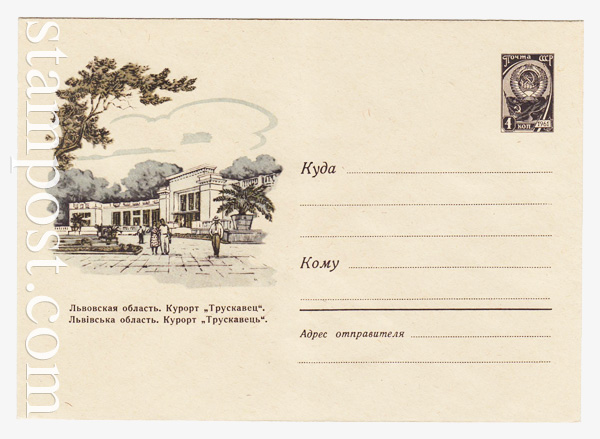 stampost.com
Почта СССР
4 коп.
Куда
Кому
Львовская область. Курорт „Трускавец“.
Львівська область. Курорт „Трускавець“.
Адрес отправителя